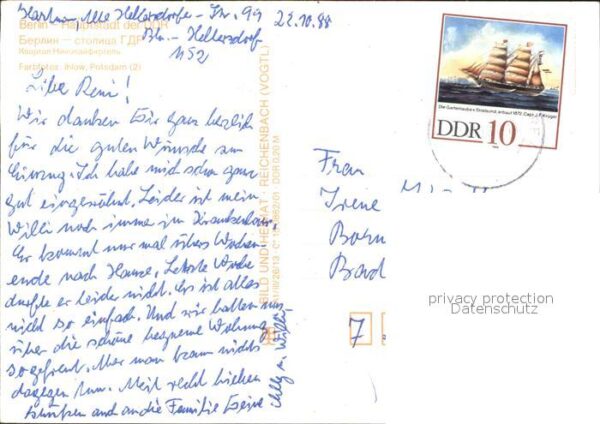 Hartm., Alte Hellersdorfer-Str. 99
22.10.88
Bln.- Hellersdorf
1152
Berlin - Hauptstadt der DDR
Берлин – столица ГДР
Farbfotos: Ihlow, Potsdam (2)
Liebe Reni!
Wir danken Dir ganz herzlich
für die guten Wünsche zum
Einzug. Ich habe mich schon ganz
gut eingewöhnt. Leider ist mein
Willi noch immer im Krankenhaus.
Er kommt nur mal übers Wochen
ende nach Hause. Letzte Woche
durfte er leider nicht. Es ist alles
nicht so einfach. Und wir hatten uns
über die schöne bequeme Wohnung
so gefreut. Aber man kann nichts
dagegen tun. Mit recht lieben
Grüßen auch an die Familie Deine
BILD UND HEIMAT · REICHENBACH (VOGTL)
DDR 0,20 M
DDR 10
Frau
Irene
Born
Brad
7
privacy protection
Datenschutz